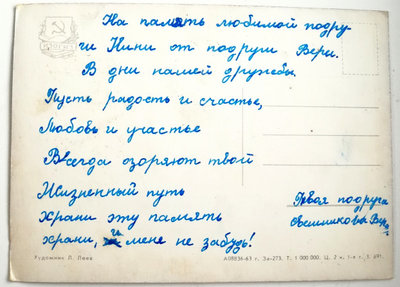 На память любимой подру
ги Нини от подруги Веры.
В дни нашей дружбы.
Пусть радость и счастье,
Любовь и участье
Всегда озоряют твой
Жизненный путь
Храни эту память
храни, и мене не забудь!
подруга
Вера
Художник Л. Леев
А08836-63 г. За-273, Т. 1 000 000. Ц. 2 к.